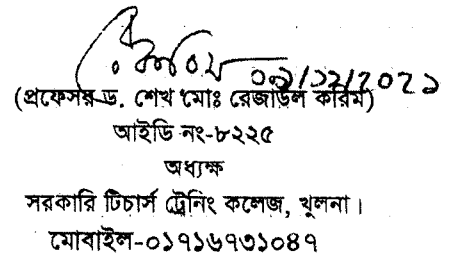 ০১/১২/২০২১
(প্রফেসর ড. শেখ মোঃ রেজাউল করিম)
আইডি নং-৮২২৫
অধ্যক্ষ
সরকারি টিচার্স ট্রেনিং কলেজ, খুলনা।
মোবাইল-০১৭১৬৭৩১০৪৭